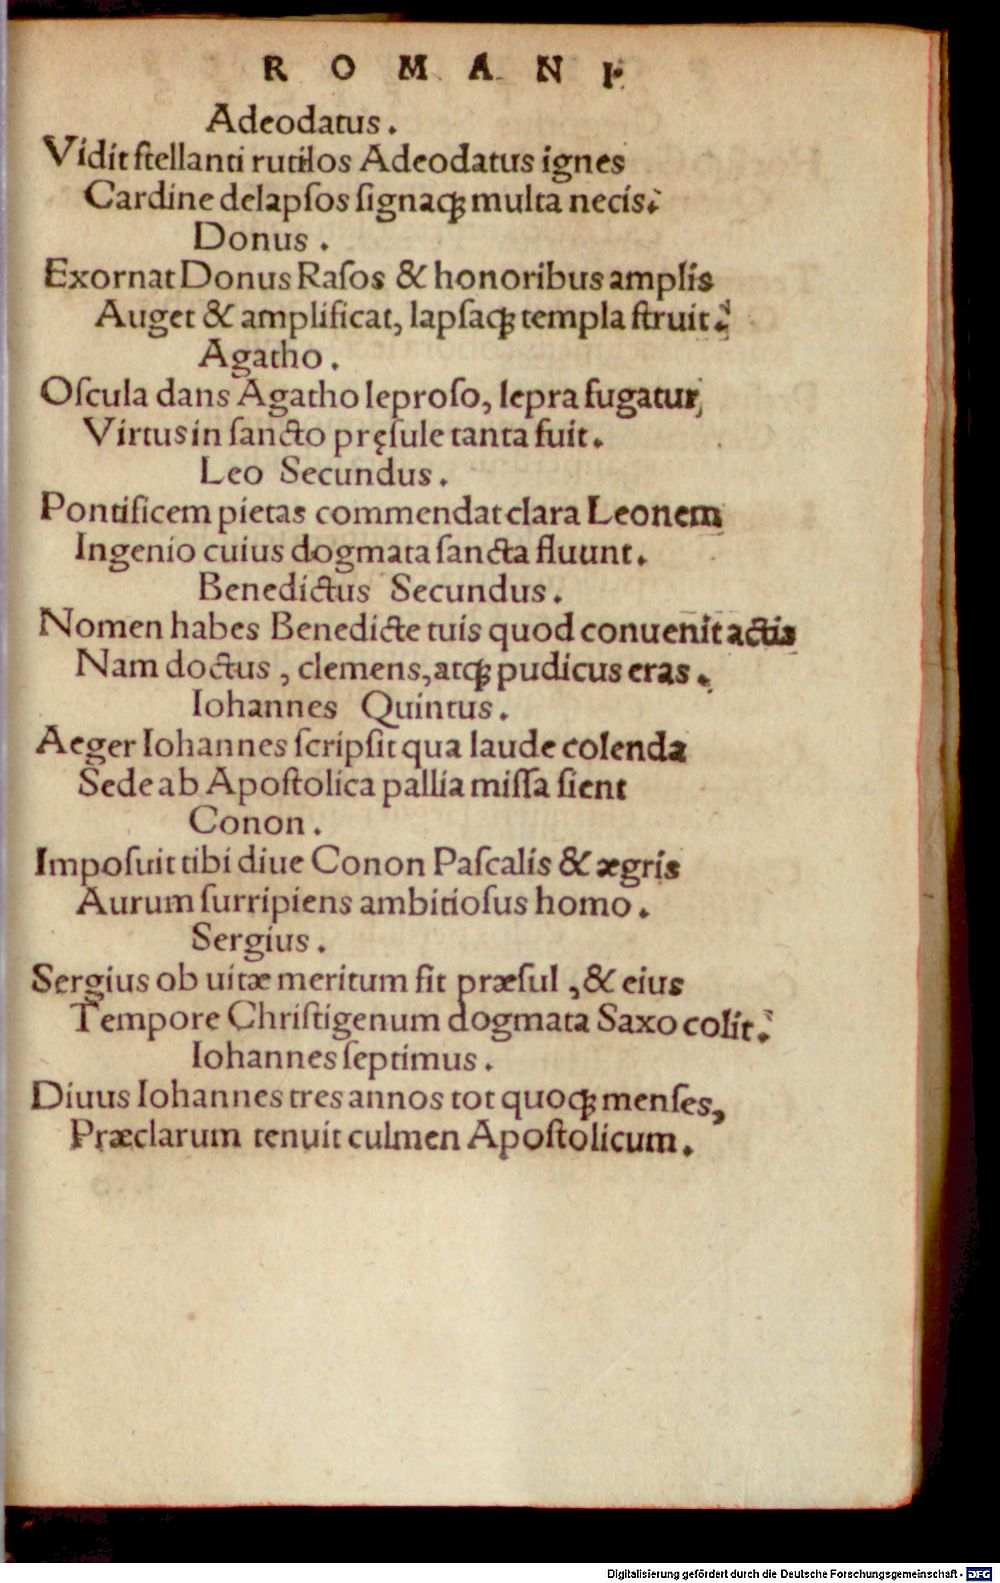 ROMANI.
Adeodatus.
Vidit ſtellanti rutilos Adeodatus ignes
Cardine delapſos ſignaqꝫ multa necis.
Donus.
Exornat Donus Raſos & honoribus amplis
Auget & amplificat, lapſaqꝫ templa ſtruit.
Agatho.
Oſcula dans Agatho leproſo, lepra fugatur,
Virtus in ſancto pręſule tanta fuit.
Leo Secundus.
Pontificem pietas commendat clara Leonem
Ingenio cuius dogmata ſancta fluunt.
Benedictus Secundus.
Nomen habes Benedicte tuis quod conuenit actis
Nam doctus, clemens, atqꝫ pudicus eras.
Iohannes Quintus.
Aeger Iohannes ſcripſit qua laude colenda
Sede ab Apoſtolica pallia miſſa ſient
Conon.
Impoſuit tibi diue Conon Paſcalis & ægris
Aurum ſurripiens ambitioſus homo.
Sergius.
Sergius ob uitæ meritum fit præſul, & eius
Tempore Chriſtigenum dogmata Saxo colit.
Iohannes ſeptimus.
Diuus Iohannes tres annos tot quoqꝫ menſes,
Præclarum tenuit culmen Apoſtolicum.
Digitalisierung gefördert durch die Deutsche Forschungsgemeinschaft - DFG